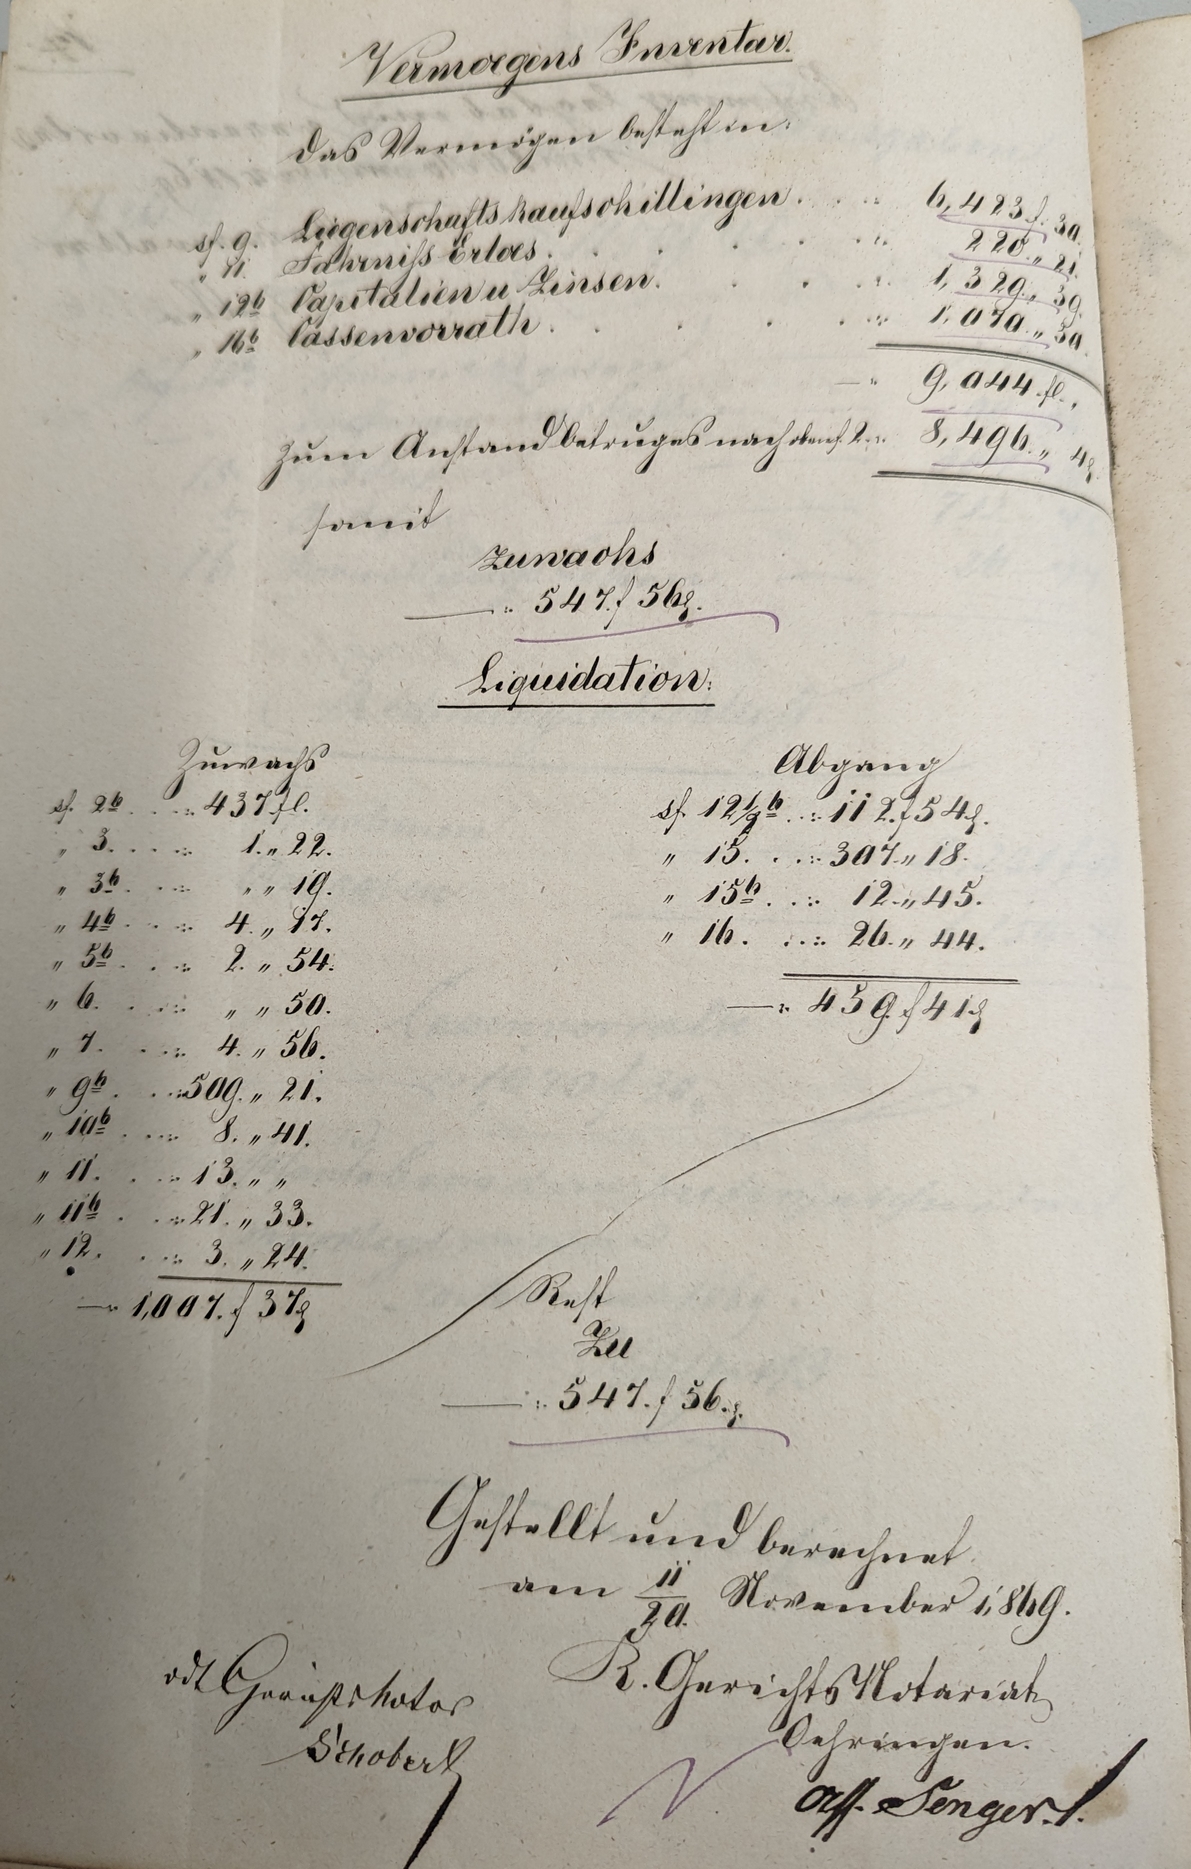 Vermoegens Inventar.
Das Vermögen besteht in:
sf. 9. Liegenschaftskaufschillingen . . . . 6,423 f. 30.
" 11. Fahrniss Erloes. . . . . 220. " 21.
" 12b Capitalien u Zinsen. . . . 1,329. " 39.
" 16b Cassenvorrath. . . . . 1,070. " 30.
— " 9,044. fl.
Zum Anstandbetruges nach oben f. 2. " 8,496. " 4x.
somit
Zuwachs
— " 547. f 56x.
Liquidation:
Zuwachs
sf. 2b . . " 437 fl.
" 3. . . . " 1. " 22.
" 3b . . " " " 19.
" 4b . . . " 4. " 17.
" 5b . . " 2. " 54.
" 6. . . " " " 50.
" 7. . . . " 4. " 56.
" 9b . . " 509. " 21.
" 10b . . . " 8. " 41.
" 11. . . " 13. " "
" 11b . . " 21. " 33.
" 12. . . " 3. " 24.
— " 1,007. f 37x
Abgang
sf. 12 1/2 b . . " 112. f 54x.
" 15. . . " 307. " 18.
" 15b . . " 12. " 45.
" 16. . . " 26. " 44.
— " 459. f 41x
Rest
Zu
— " 547. f 56. x.
Gestellt und berechnet
am 11/20. November 1,869.
K. Gerichts Notariat
Oehringen.
vdt Gerichtsnotar
Schobert
Ass. Senger.